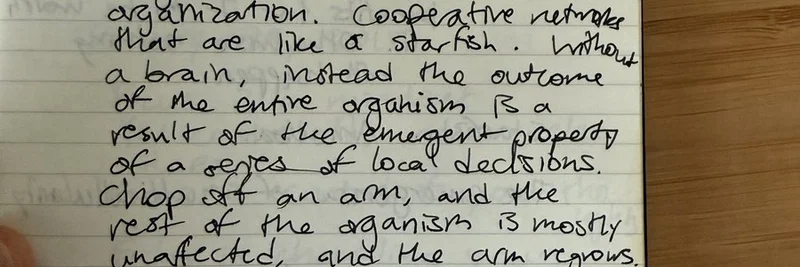 organization. Cooperative networks
that are like a starfish. Without
a brain, instead the outcome
of the entire organism is a
result of the emergent property
of a series of local decisions.
Chop off an arm, and the
rest of the organism is mostly
unaffected, and the arm regrows.